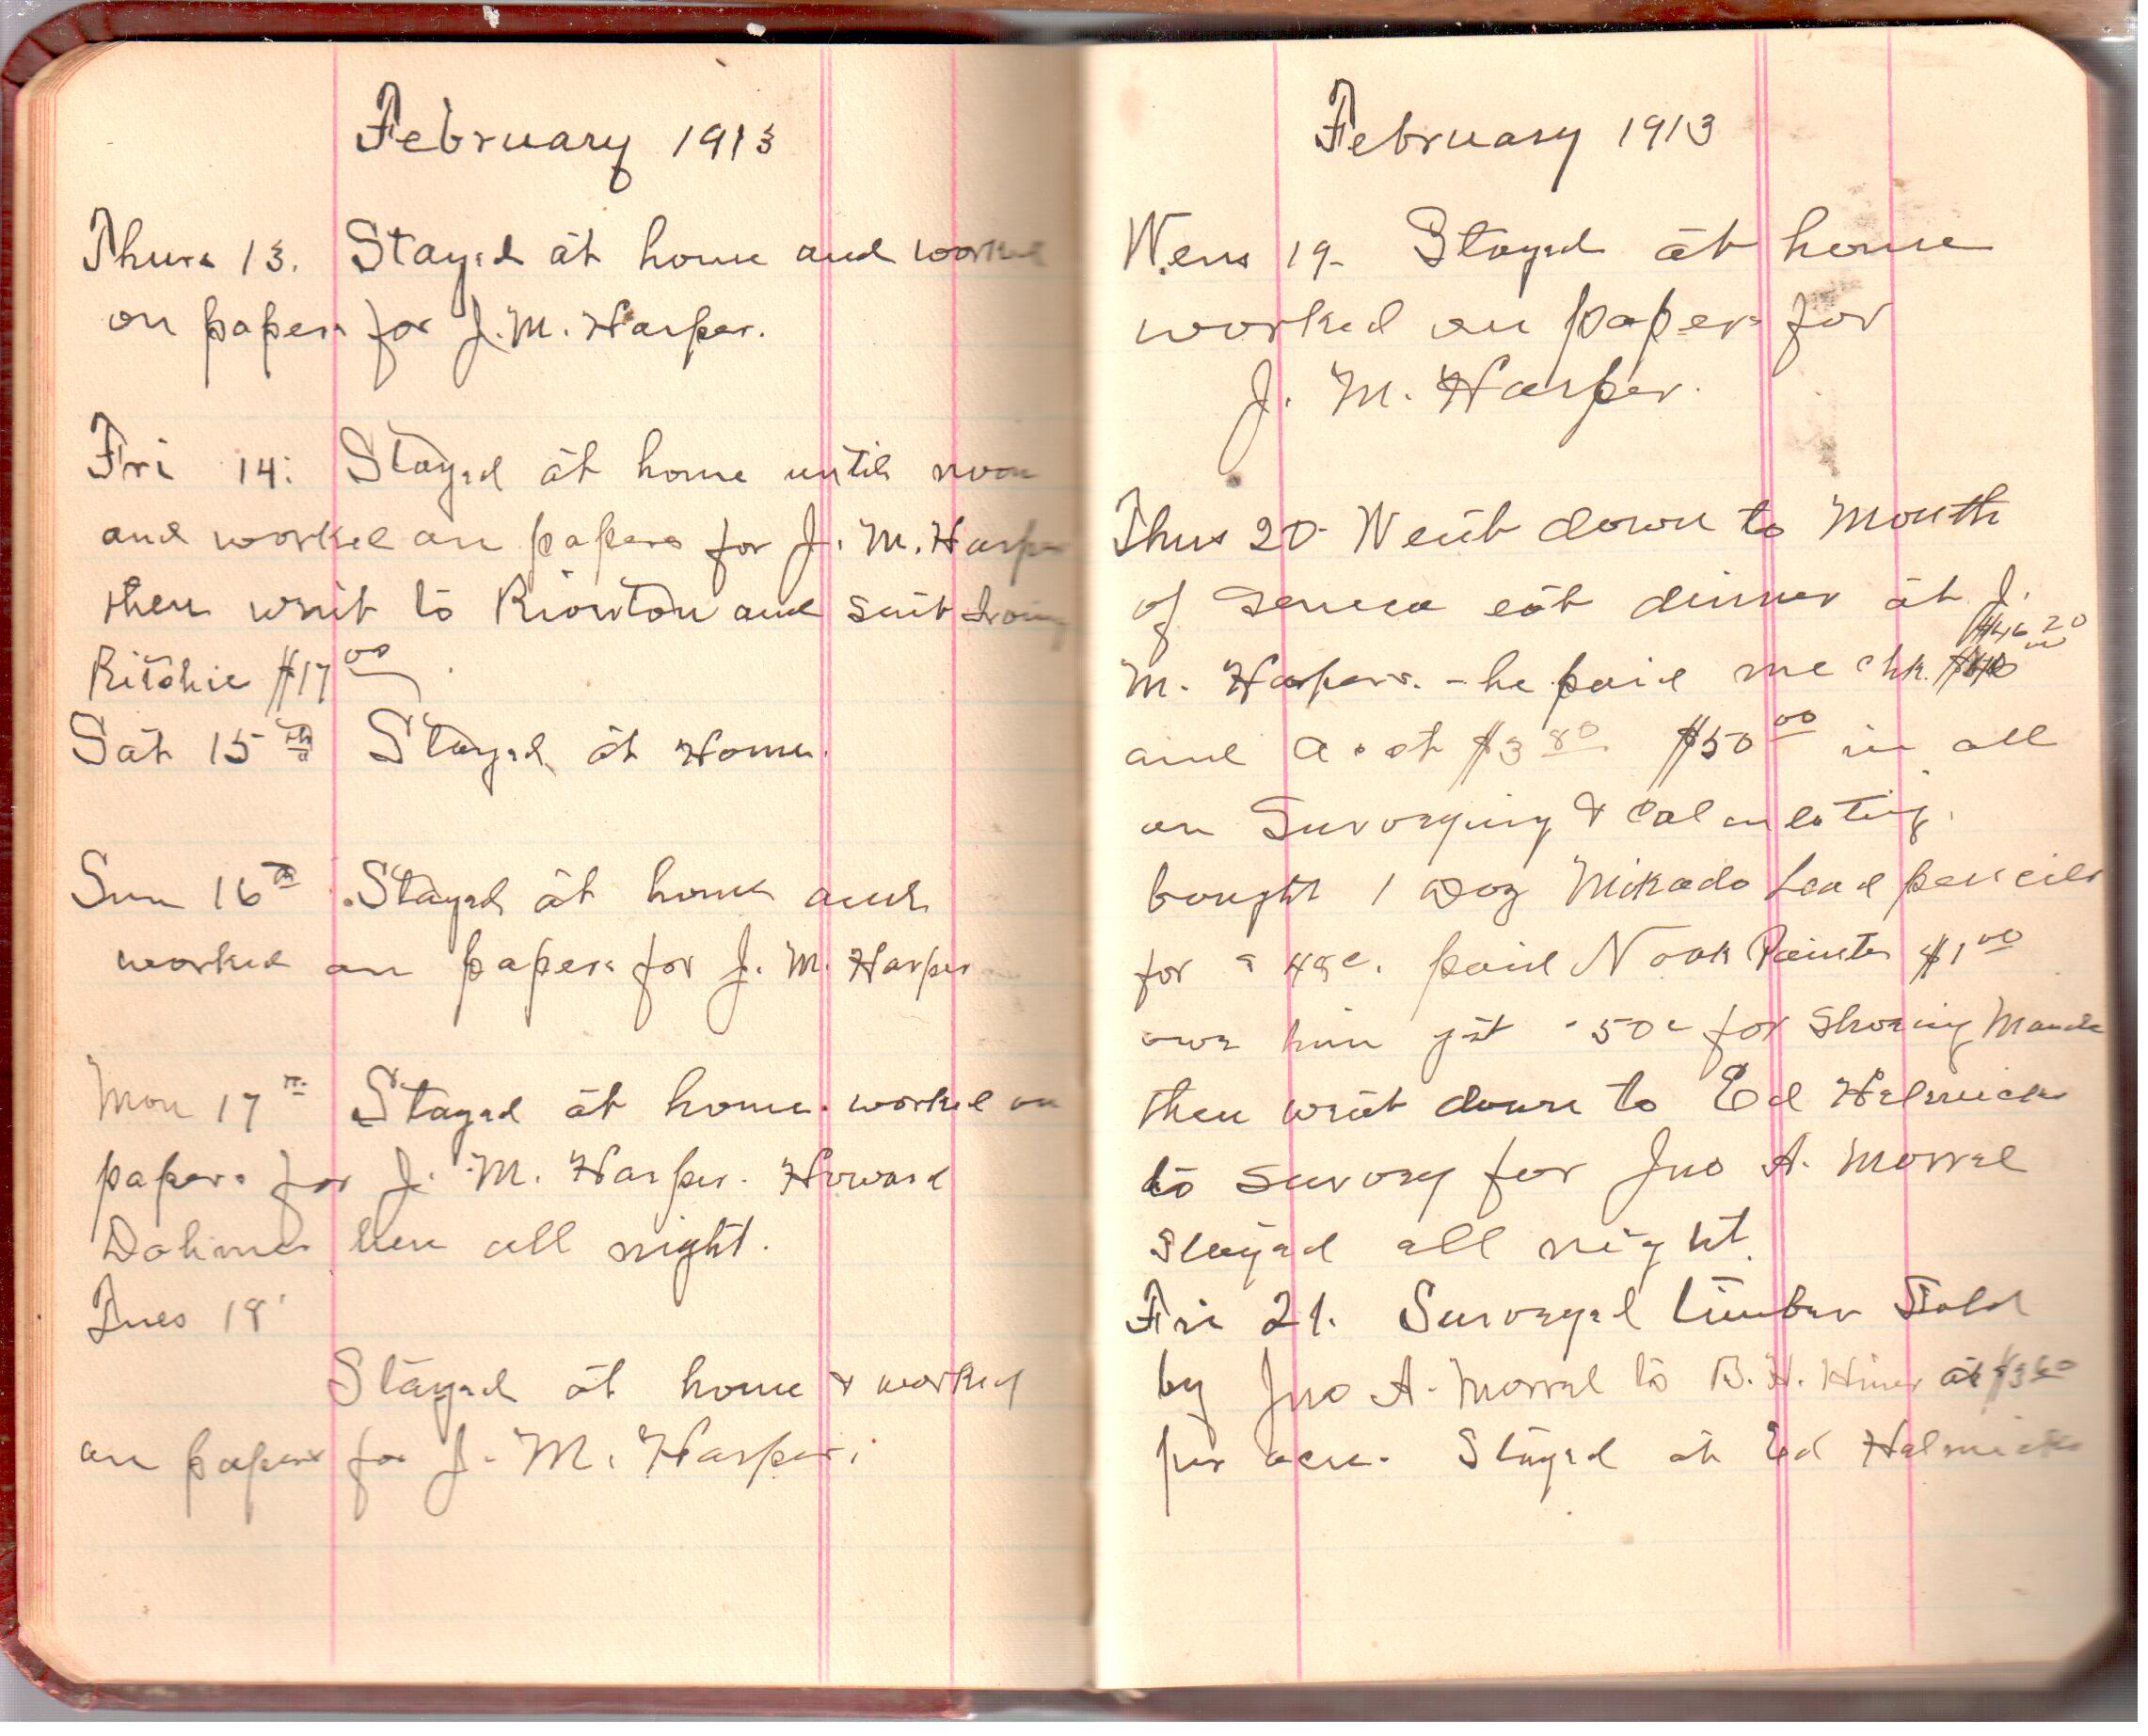 February 1913
Thurs 13. Stayed at home and worked
on papers for J. M. Harper.
Fri 14. Stayed at home until noon
and worked on papers for J. M. Harper
then went to Riverton and sent
Ritchie $17 00
Sat 15th Stayed at Home.
Sun 16th Stayed at home and
worked on papers for J. M. Harper
Mon 17th Stayed at home. worked on
papers for J. M. Harper. Howard
Dahmer here all night.
Tues 18
Stayed at home & worked
on papers for J. M. Harper.
February 1913
Wens 19 Stayed at home
worked on papers for
J. M. Harper.
Thus 20 Went down to Mouth
of Seneca eat dinner at J.
$46 20
M. Harpers. - he paid me chk.
and a ct $3 80 $50 00 in all
on Surveying & Calculating.
bought 1 Doz Mikado Lead pencils
for 48c. paid Noah Painter $1 00
owe him yet 50c for Shoeing Maude
then went down to Ed Helmicks
to survey for Jno A. Morral
stayed all night.
Fri 21. Surveyed timber Sold
by Jno A. Morral to B. H. Hiner at
per acre. Stayed at Ed Helmicks